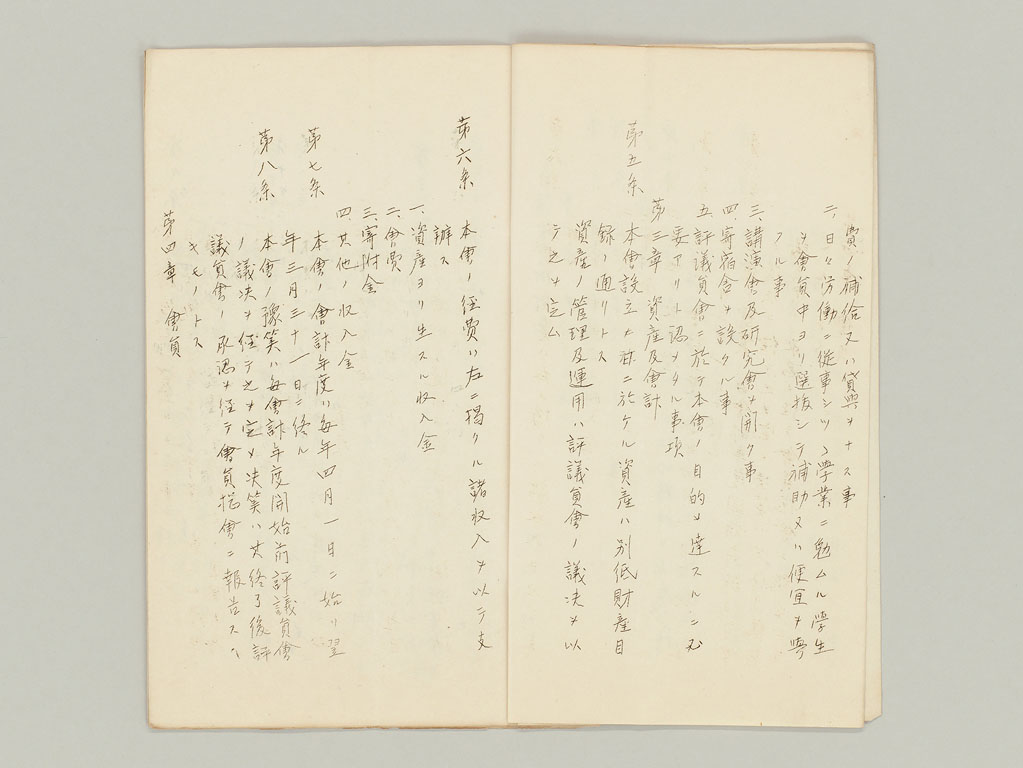 費ノ補給又ハ貸與ヲナス事
二、日々労働ニ從事シツヽ學業ニ勉ムル學生
ヲ會員中ヨリ選抜シテ補助又ハ便宜ヲ與
フル事
三、講演會及研究會ヲ開ク事
四、寄宿舎ヲ設クル事
五、評議員會ニ於テ本會ノ目的ヲ達スルニ必
要アリト認メタル事項
第三章 資産及會計
第五条 本會設立ノ時ニ於ケル資産ハ別紙財産目
録ノ通リトス
資産ノ管理及運用ハ評議員會ノ議決ヲ以
テ之ヲ定ム
第六条 本會ノ經費ハ左ニ掲クル諸収入ヲ以テ支
辦ス
一、資産ヨリ生スル収入金
二、會費
三、寄附金
四、其他ノ収入金
第七条 本會ノ會計年度ハ毎年四月一日ニ始リ翌
年三月三十一日ニ終ル
第八条 本會ノ豫算ハ毎會計年度開始前評議員會
ノ議決ヲ經テ之ヲ定メ決算ハ其終了後評
議員會ノ承認ヲ經テ會員総會ニ報告スヘ
キモノトス
第四章 會員